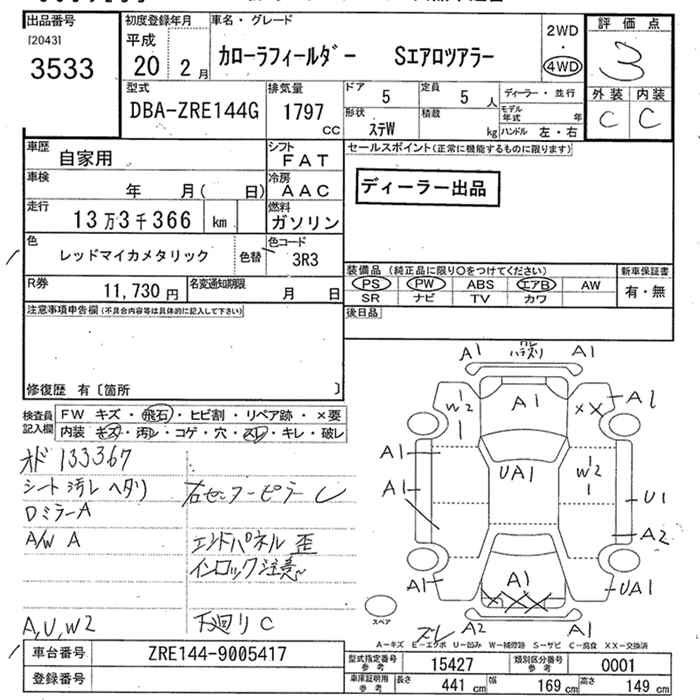 出品番号
[2043]
3533
初度登録年月
平成
20 2月
車名・グレード
カローラフィールダー Sエアロツアラー
2WD
・
4WD
評価点
3
外装 内装
C C
型式
DBA-ZRE144G
排気量
1797 CC
ドア 5
定員 5 人
形状 ステW
積載 kg
ディーラー・並行
モデル年式 年
ハンドル 左・右
車歴 自家用
シフト FAT
車検 年 月( 日)
冷房 AAC
走行 13万3千366 km
燃料 ガソリン
色 レッドマイカメタリック 色替
色コード 3R3
R券 11,730円
名変通知期限 月 日
セールスポイント(正常に機能するものに限ります)
ディーラー出品
装備品(純正品に限り○をつけてください)
PS PW ABS エアB AW
SR ナビ TV カワ
新車保証書
有・無
後日品
注意事項申告欄(不具合内容等は具体的に記入して下さい)
修復歴 有〔箇所 〕
検査員記入欄
FW キズ・飛石・ヒビ割・リペア跡・×要
内装 キズ・汚レ・コゲ・穴・スレ・キレ・破レ
オド 133367
シート汚レ ヘタリ
Dミラー A
A/W A
A,U,W2
エンドパネル 歪
インロック注意
下廻り C
A1 A1
A1
W2
1
XX
A1
A1
UA1
W2
1
A1
U1
A2
A1
A1
UA1
A2
A1
スペア
A-キズ E-エクボ U-凹み W-補修跡 S-サビ C-腐食 XX-交換済
車台番号 ZRE144-9005417
登録番号
型式指定番号参考 15427
類別区分番号参考 0001
車庫証明用参考 長さ 441 cm 幅 169 cm 高さ 149 cm